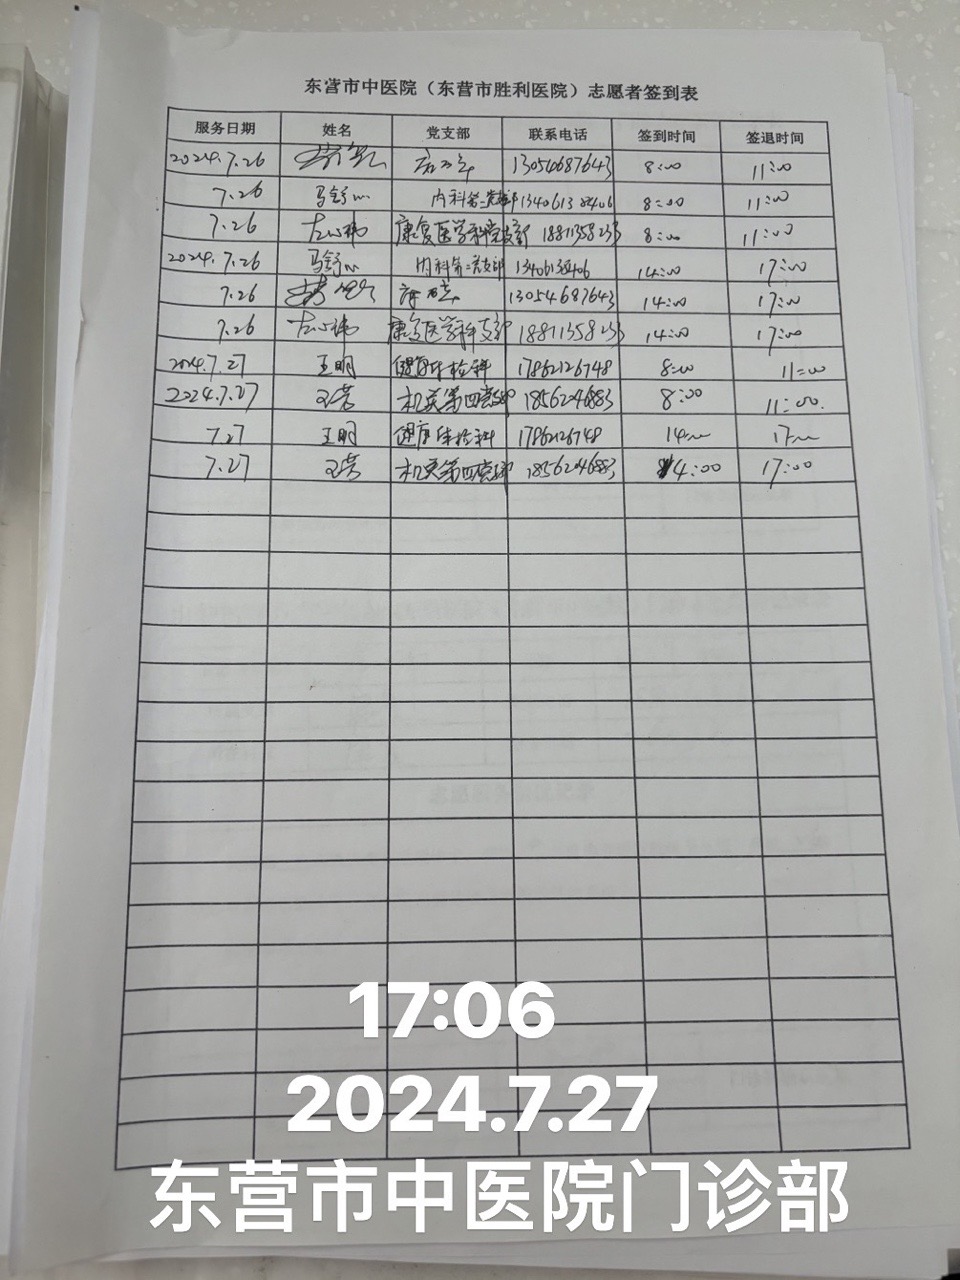 东营市中医院（东营市胜利医院）志愿者签到表
服务日期 姓名 党支部 联系电话 签到时间 签退时间
2024.7.26 13054687643 8:00 11:00
7.26 马舒心 内科第二党支部 13406138406 8:00 11:00
7.26 左心祎 康复医学科党支部 18811358233 8:00 11:00
2024.7.26 马舒心 内科第二党支部 14:00 17:00
7.26 13054687643 14:00 17:00
7.26 左心祎 康复医学科支部 18811358233 14:00 17:00
2024.7.27 王明 健康体检科 17862126748 8:00 11:00
2024.7.27 机关第四党支部 18562046883 8:00 11:00.
7.27 王明 健康体检科 17862126748 14 17
7.27 机关第四党支部 18562046883 14:00 17:00
17:06
2024.7.27
东营市中医院门诊部